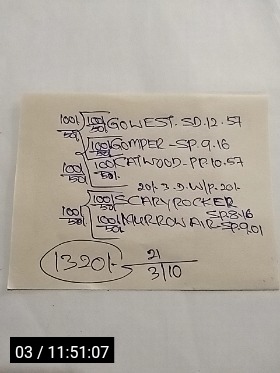 100/50/ 100/50/ GOWEST. SD.12.57
100/50/ GOMPER - SP.9.16
100/50/ 100/50/ CATWOOD - PP.10.57
20/- 3. D. W/P. 20/-
100/50/ 100/50/ SCARYROCKER SP.8.16
100/50/ MURROW AIR - SP.9.01
1320/- 21
3/10
03 / 11:51:07